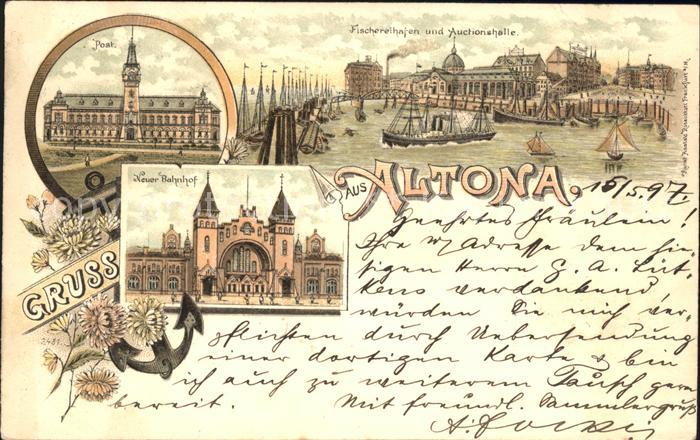 Post.
Fischereihafen und Auctionshalle.
Neuer Bahnhof
GRUSS
AUS
ALTONA,
15/5.97.
Geehrtes Fräulein!
Ihre w/ Adresse dem hie-
sigen Herrn G. A. Lüt-
kens verdankend,
würden Sie mich ver-
pflichten durch Uebersendung
einer dortigen Karte & bin
ich auch zu weiterem Tausch gern
bereit. Mit freundl. Sammlergruß
2431.